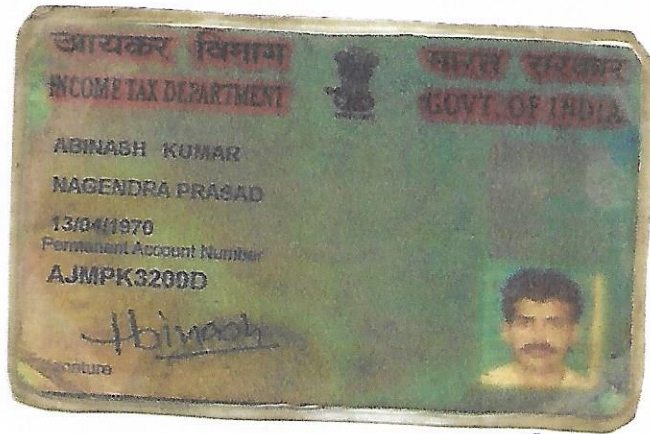 आयकर विभाग
भारत सरकार
INCOME TAX DEPARTMENT
GOVT. OF INDIA
ABINASH KUMAR
NAGENDRA PRASAD
13/04/1970
Permanent Account Number
AJMPK3200D
Abinash